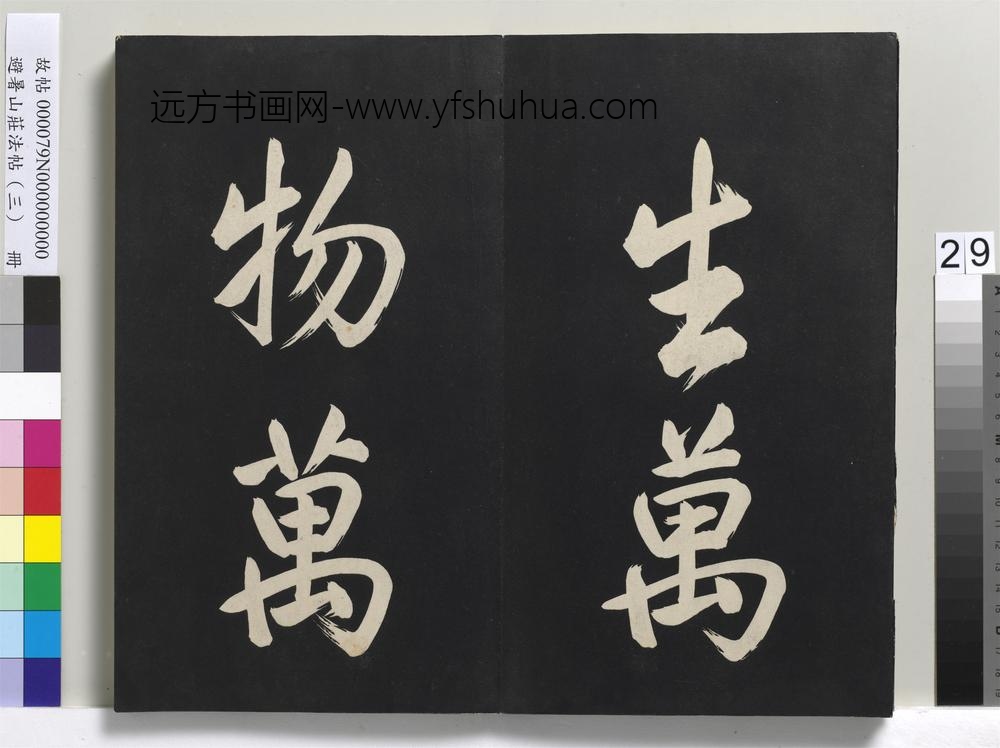 远方书画网-www.yfshuhua.com
生萬
物萬
故帖 000079N000000000
避暑山莊法帖（三） 冊
29